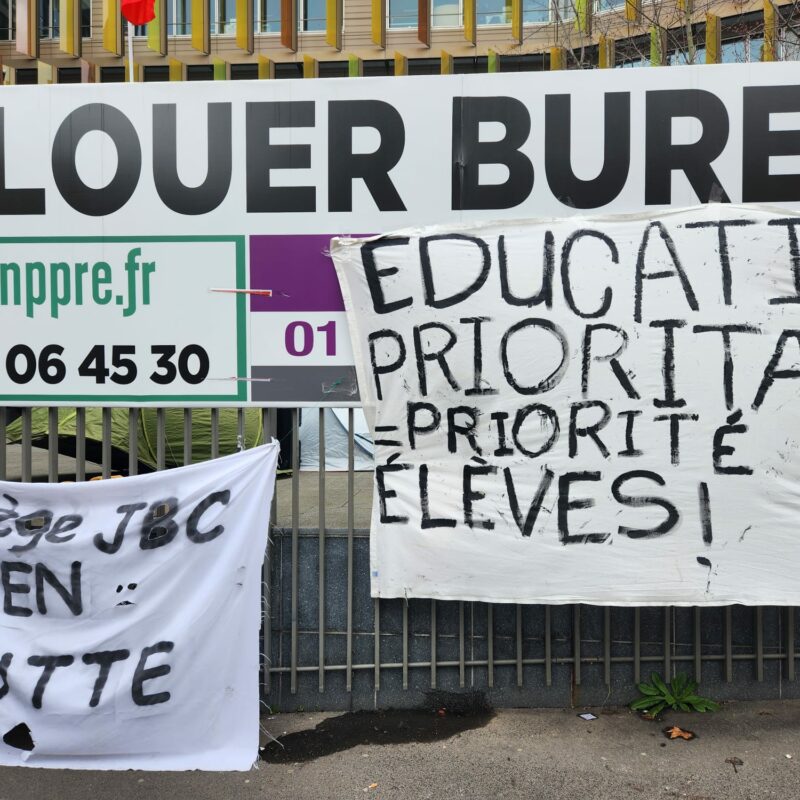 LOUER BURE
nppre.fr
06 45 30
01
EDUCATI
PRIORITA
=PRIORITÉ
ÉLÈVES!
ège JBC
EN
TTE